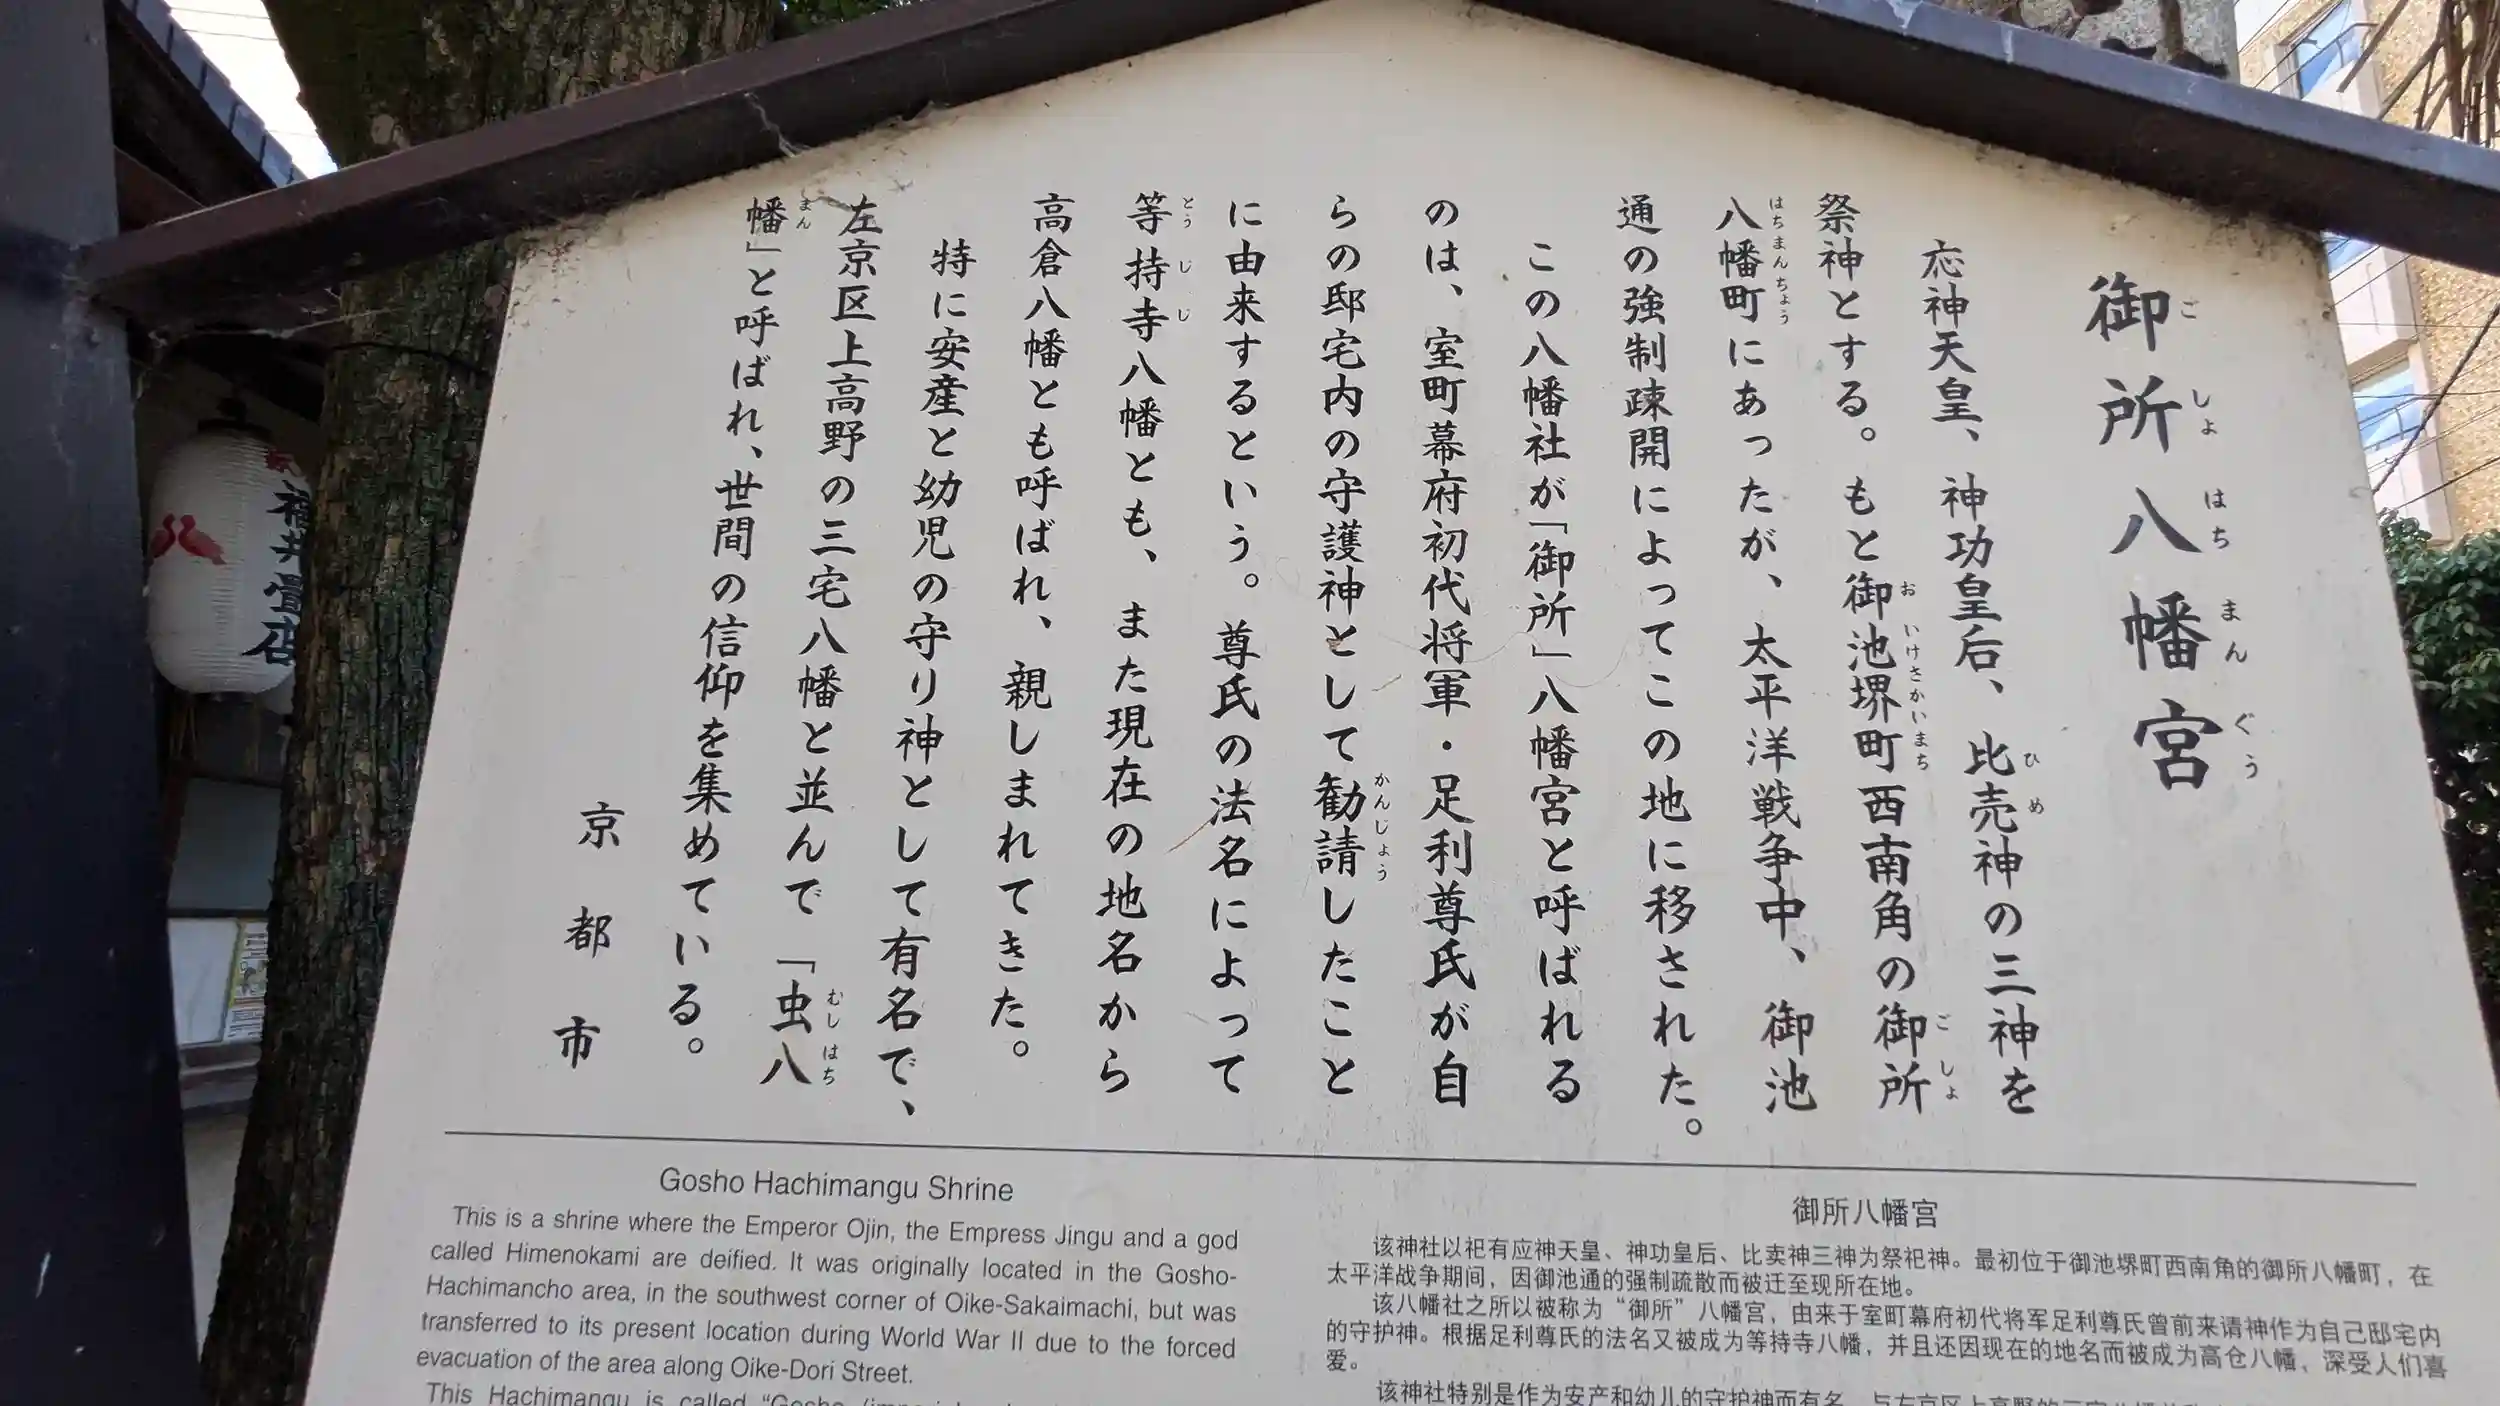 御所八幡宮
ご しょ はち まん ぐう
応神天皇、神功皇后、比売神の三神を
ひ め
祭神とする。もと御池堺町西南角の御所
お いけさかいまち ご しょ
八幡町にあったが、太平洋戦争中、御池
はちまんちょう
通の強制疎開によってこの地に移された。
この八幡社が「御所」八幡宮と呼ばれる
のは、室町幕府初代将軍・足利尊氏が自
らの邸宅内の守護神として勧請したこと
かんじょう
に由来するという。尊氏の法名によって
等持寺八幡とも、また現在の地名から
とう じ じ
高倉八幡とも呼ばれ、親しまれてきた。
特に安産と幼児の守り神として有名で、
左京区上高野の三宅八幡と並んで「虫八
むし はち
幡」と呼ばれ、世間の信仰を集めている。
まん
京都市
Gosho Hachimangu Shrine
This is a shrine where the Emperor Ojin, the Empress Jingu and a god
called Himenokami are deified. It was originally located in the Gosho-
Hachimancho area, in the southwest corner of Oike-Sakaimachi, but was
transferred to its present location during World War II due to the forced
evacuation of the area along Oike-Dori Street.
This Hachimangu is called "Gosho
御所八幡宮
该神社以祀有应神天皇、神功皇后、比卖神三神为祭祀神。最初位于御池堺町西南角的御所八幡町，在
太平洋战争期间，因御池通的强制疏散而被迁至现所在地。
该八幡社之所以被称为“御所”八幡宫，由来于室町幕府初代将军足利尊氏曾前来请神作为自己邸宅内
的守护神。根据足利尊氏的法名又被成为等持寺八幡，并且还因现在的地名而被成为高仓八幡，深受人们喜
爱。
该神社特别是作为安产和幼儿的守护神而有名
福井畳店